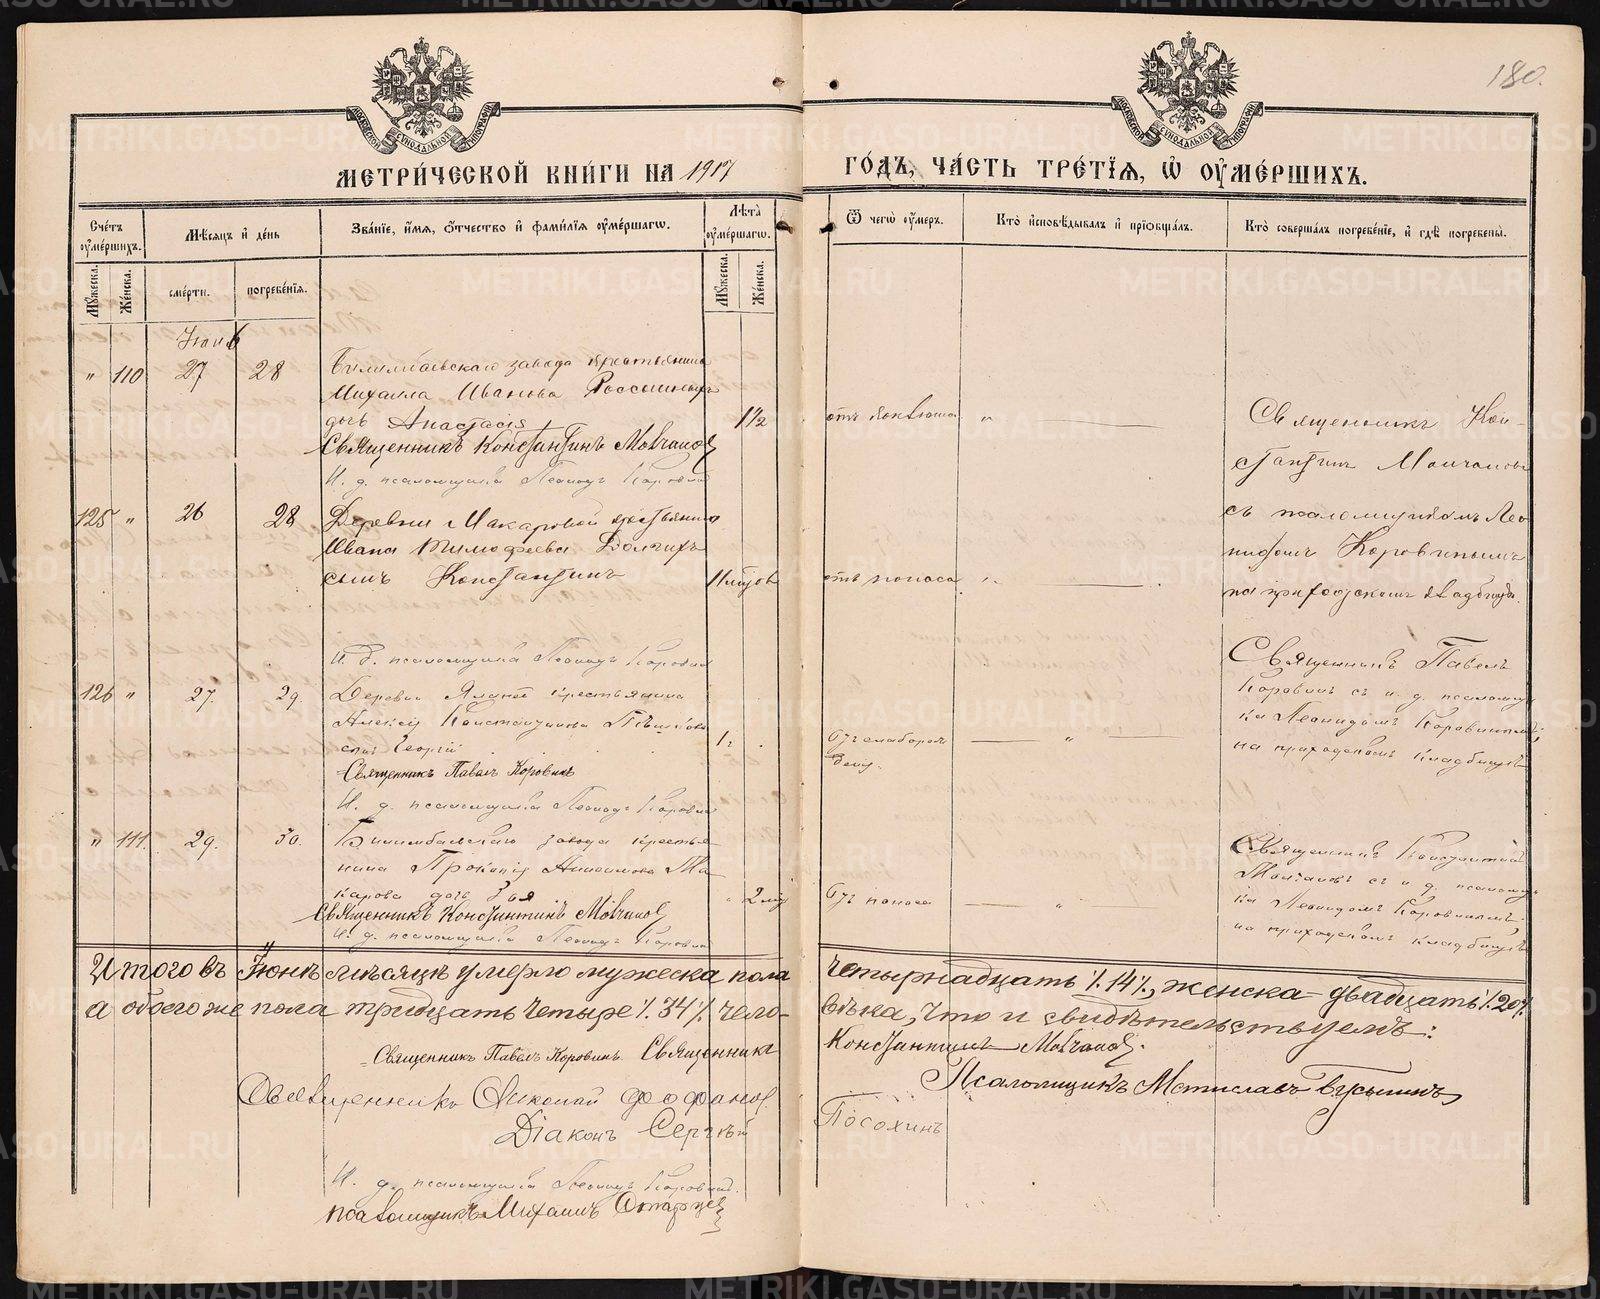 180.
МЕТРИ́ЧЕСКОЙ КНИ́ГИ НА 1917
ГО́ДЪ, ЧА́СТЬ ТРЕ́ТІЯ, Ѡ ОУМЕ́РШИХЪ.
Сче́тъ оумершихъ.
Мѣсяцъ и де́нь
Зва́ніе, и́мя, о́тчество и фами́лія оуме́ршагѡ.
Лѣта̀ оуме́ршагѡ.
Ѿ чегѡ̀ оу́меръ.
Кто̀ исповѣ́дывалъ и прїобща́лъ.
Кто̀ соверша́лъ погребе́ніе, и гдѣ̀ погребены̀.
Мужеска.
Женска.
сме́рти.
погребе́нія.
Мужеска.
Женска.
Іюнь
" 110 27 28 Билимбаевскаго завода крестьянина
Михаила Иванова
дочь Анастасія 1½ отъ коклюша "
Священникъ Константинъ Молчановъ
И. д. псаломщика Леонидъ Коровинъ
Священникъ Кон-
стантинъ Молчановъ
съ псаломщикомъ Лео
нидомъ Коровинымъ
на приходскомъ кладбищѣ.
125 " 26 28 Деревни Макаровой крестьянина
Ивана Тимофеева Долгихъ
сынъ Константинъ отъ поноса "
И. д. псаломщика Леонидъ Коровинъ
126 " 27. 29. Деревни крестьянина
Алексѣя Константинова
сынъ Георгій
Священникъ Павелъ Коровинъ
И. д. псаломщика Леонидъ Коровинъ
Священникъ Павелъ
Коровинъ съ и. д. псаломщи
ка Леонидомъ Коровинымъ;
на приходскомъ кладбищѣ
" 111. 29. 30. Билимбаевскаго завода крестья
нина Прокопія Анисимова Ма
карова дочь Зоя " 2 отъ поноса "
Священникъ Константинъ Молчановъ
И. д. псаломщика Леонидъ Коровинъ
Священникъ Константинъ
Молчановъ съ и. д. псаломщи
ка Леонидомъ Коровинымъ
на приходскомъ кладбищѣ
Итого въ Іюнѣ мѣсяцѣ умерло мужеска пола четырнадцать /. 14 /., женска - двадцать /. 20 /.
а обоего же пола тридцать четыре /. 34 /. чело-
вѣка, что и свидѣтельствуемъ:
Священникъ Павелъ Коровинъ. Священникъ Константинъ Молчановъ.
Священникъ Николай Феофановъ
Псаломщикъ Мстиславъ
Діаконъ Сергѣй Посохинъ
И. д. псаломщика Леонидъ Коровинъ.
псаломщикъ Михаилъ
METRIKI.GASO-URAL.RU